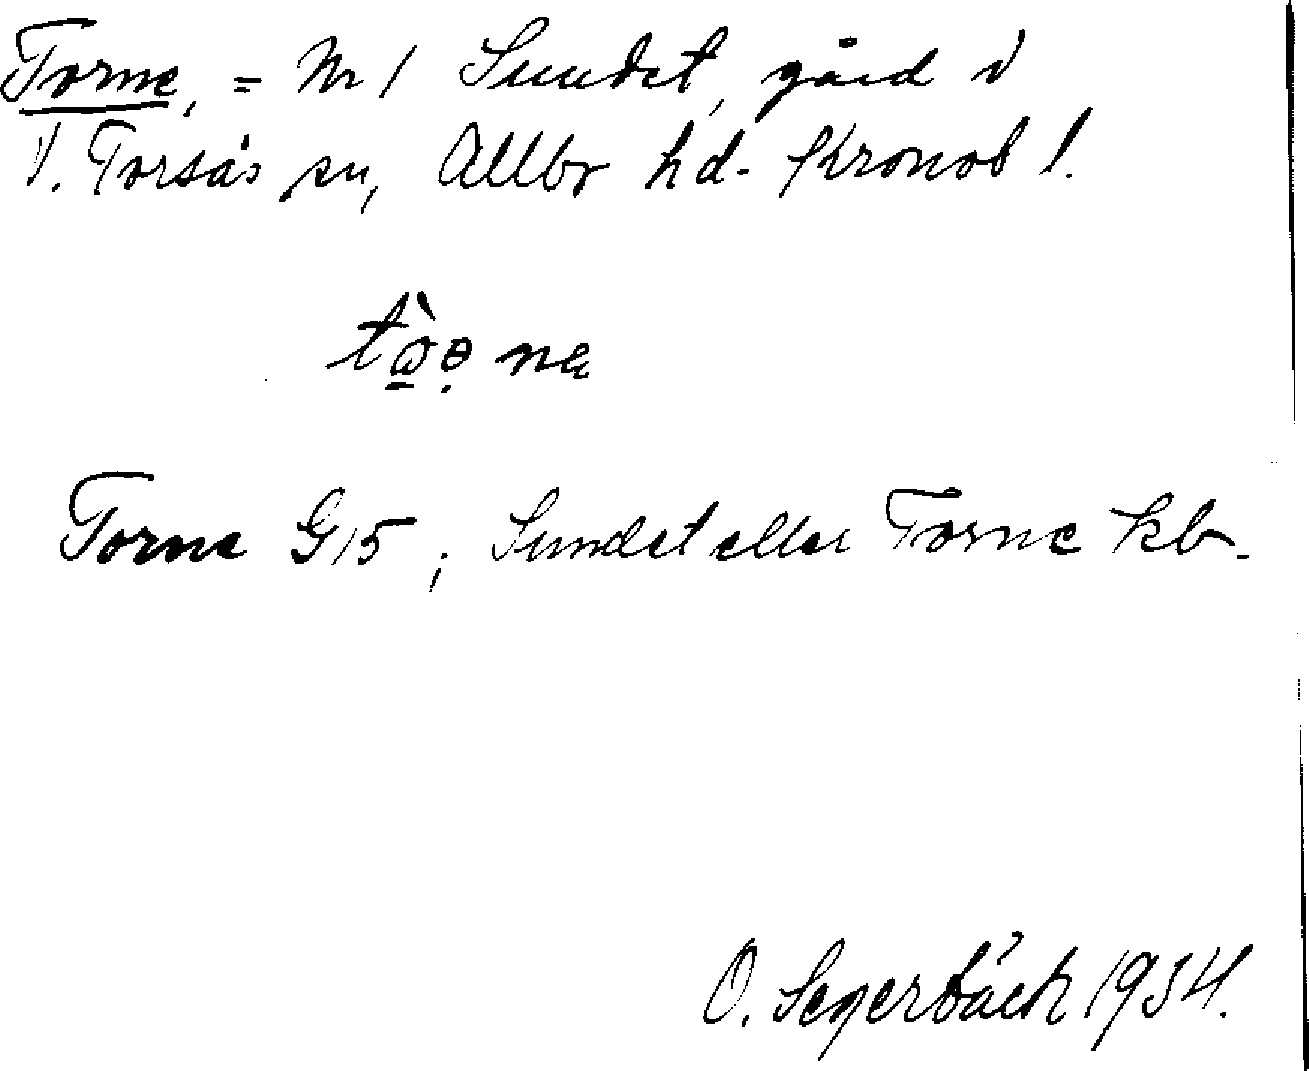 Torne, = Nr 1 Sundet, gård i
V. Torsås sn, Allbo hd. Kronob l.
Torne G15; Sundet eller Torne kb.
O. Segerbäck 1934.